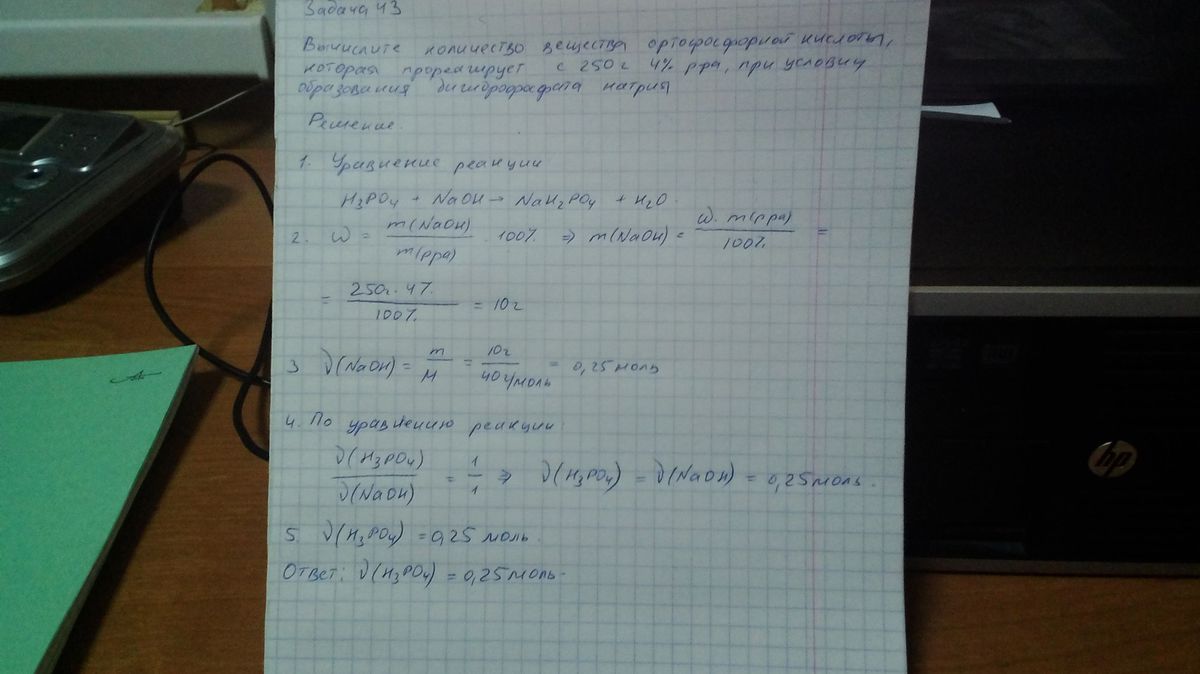 Задача 43
Вычислите количество вещества ортофосфорной кислоты,
которая прореагирует с 250г 4% р-ра, при условии
образования дигидрофосфата натрия
Решение.
1. Уравнение реакции
H₃PO₄ + NaOH → NaH₂PO₄ + H₂O.
2. ω = m(NaOH)/m(рра) · 100% ⇒ m(NaOH) = ω · m(рра)/100% =
= 250г · 4%/100% = 10г
3 ν(NaOH) = m/M = 10г/40г/моль = 0,25 моль
4. По уравнению реакции:
ν(H₃PO₄)/ν(NaOH) = 1/1 ⇒ ν(H₃PO₄) = ν(NaOH) = 0,25 моль.
5. ν(H₃PO₄) = 0,25 моль.
Ответ: ν(H₃PO₄) = 0,25 моль.
hp